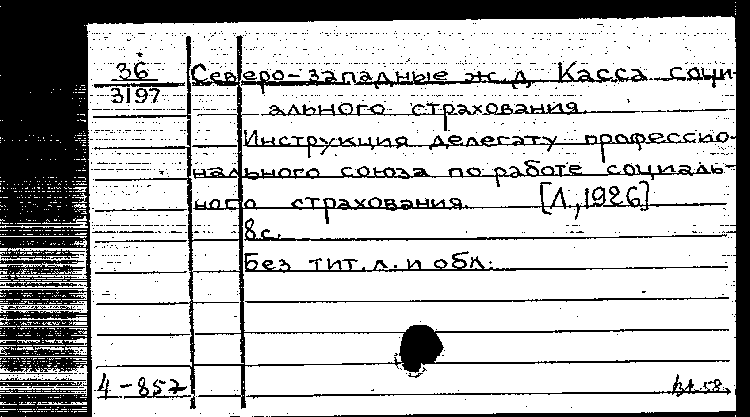 36
3197
Северо-западные ж.д. Касса соци-
ального страхования.
Инструкция делегату профессио-
нального союза по работе социаль-
ного страхования. [Л., 1926]
8с.
Без тит. л. и обл.
4-857